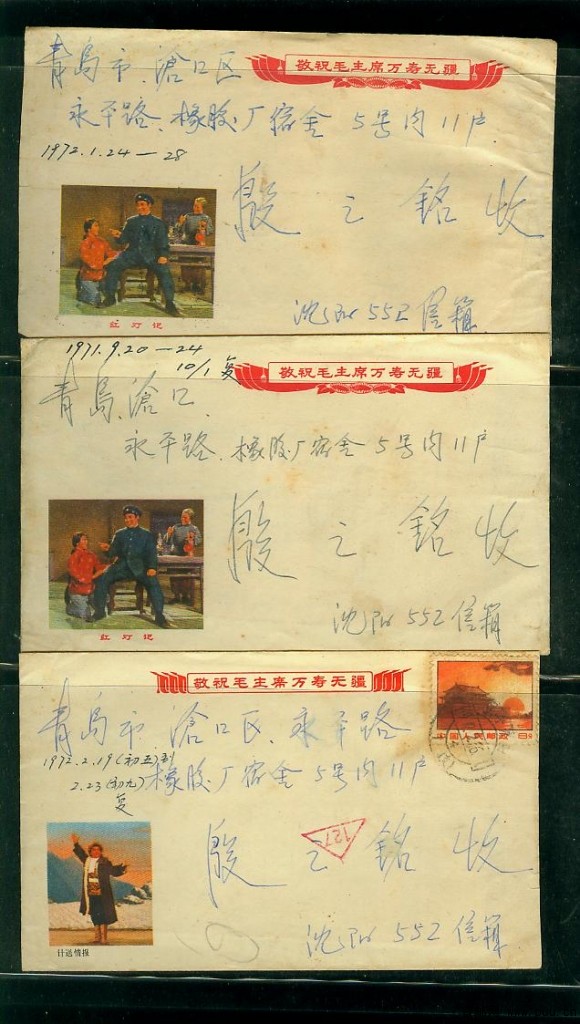 敬祝毛主席万寿无疆
青岛市、滄口区
永平路、橡胶厂宿舍 5号内11户
1972.1.24—28
殷之銘 收
红灯记
沈阳552信箱
1971.9.20—24
10/1复
敬祝毛主席万寿无疆
青島、滄口、
永平路、橡胶厂宿舍 5号内11户
殷之銘 收
红灯记
沈阳552信箱
敬祝毛主席万寿无疆
中国人民邮政 8分
青岛市 滄口区、永平路
1972.2.19(初五)到
橡胶厂宿舍 5号内11户
2.23(初九)
复
127
殷之銘 收
计送情报
沈阳552信箱